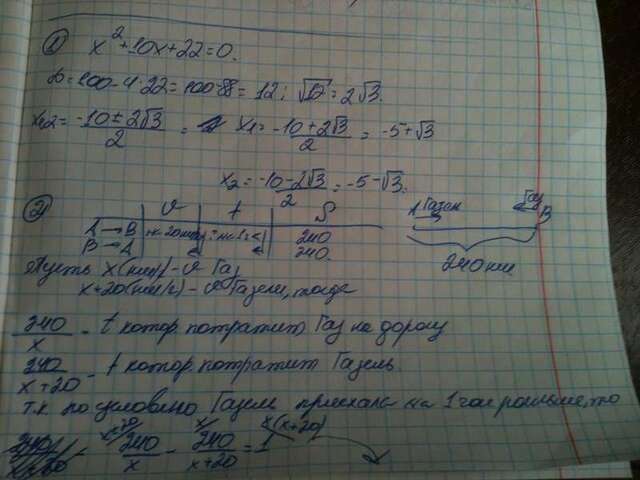 1) x²+10x+22=0.
D=100-4·22=100-88=12; √12=2√3.
x1,2= -10±2√3/2 = x1= -10+2√3/2 = -5+√3
x2= -10-2√3/2 = -5-√3.
2) v t S
A→B 240
B→A 240.
A Газел Газ B
240км.
Пусть x(км/ч)-v Газ
x+20(км/ч)-v Газели, тогда
240/x - t котор. потратит Газ на дорогу
240/x+20 - t котор. потратит Газель
т.к по условию Газель приехала на 1 час раньше, то
240/x - 240/x+20 = 1 x(x+20)